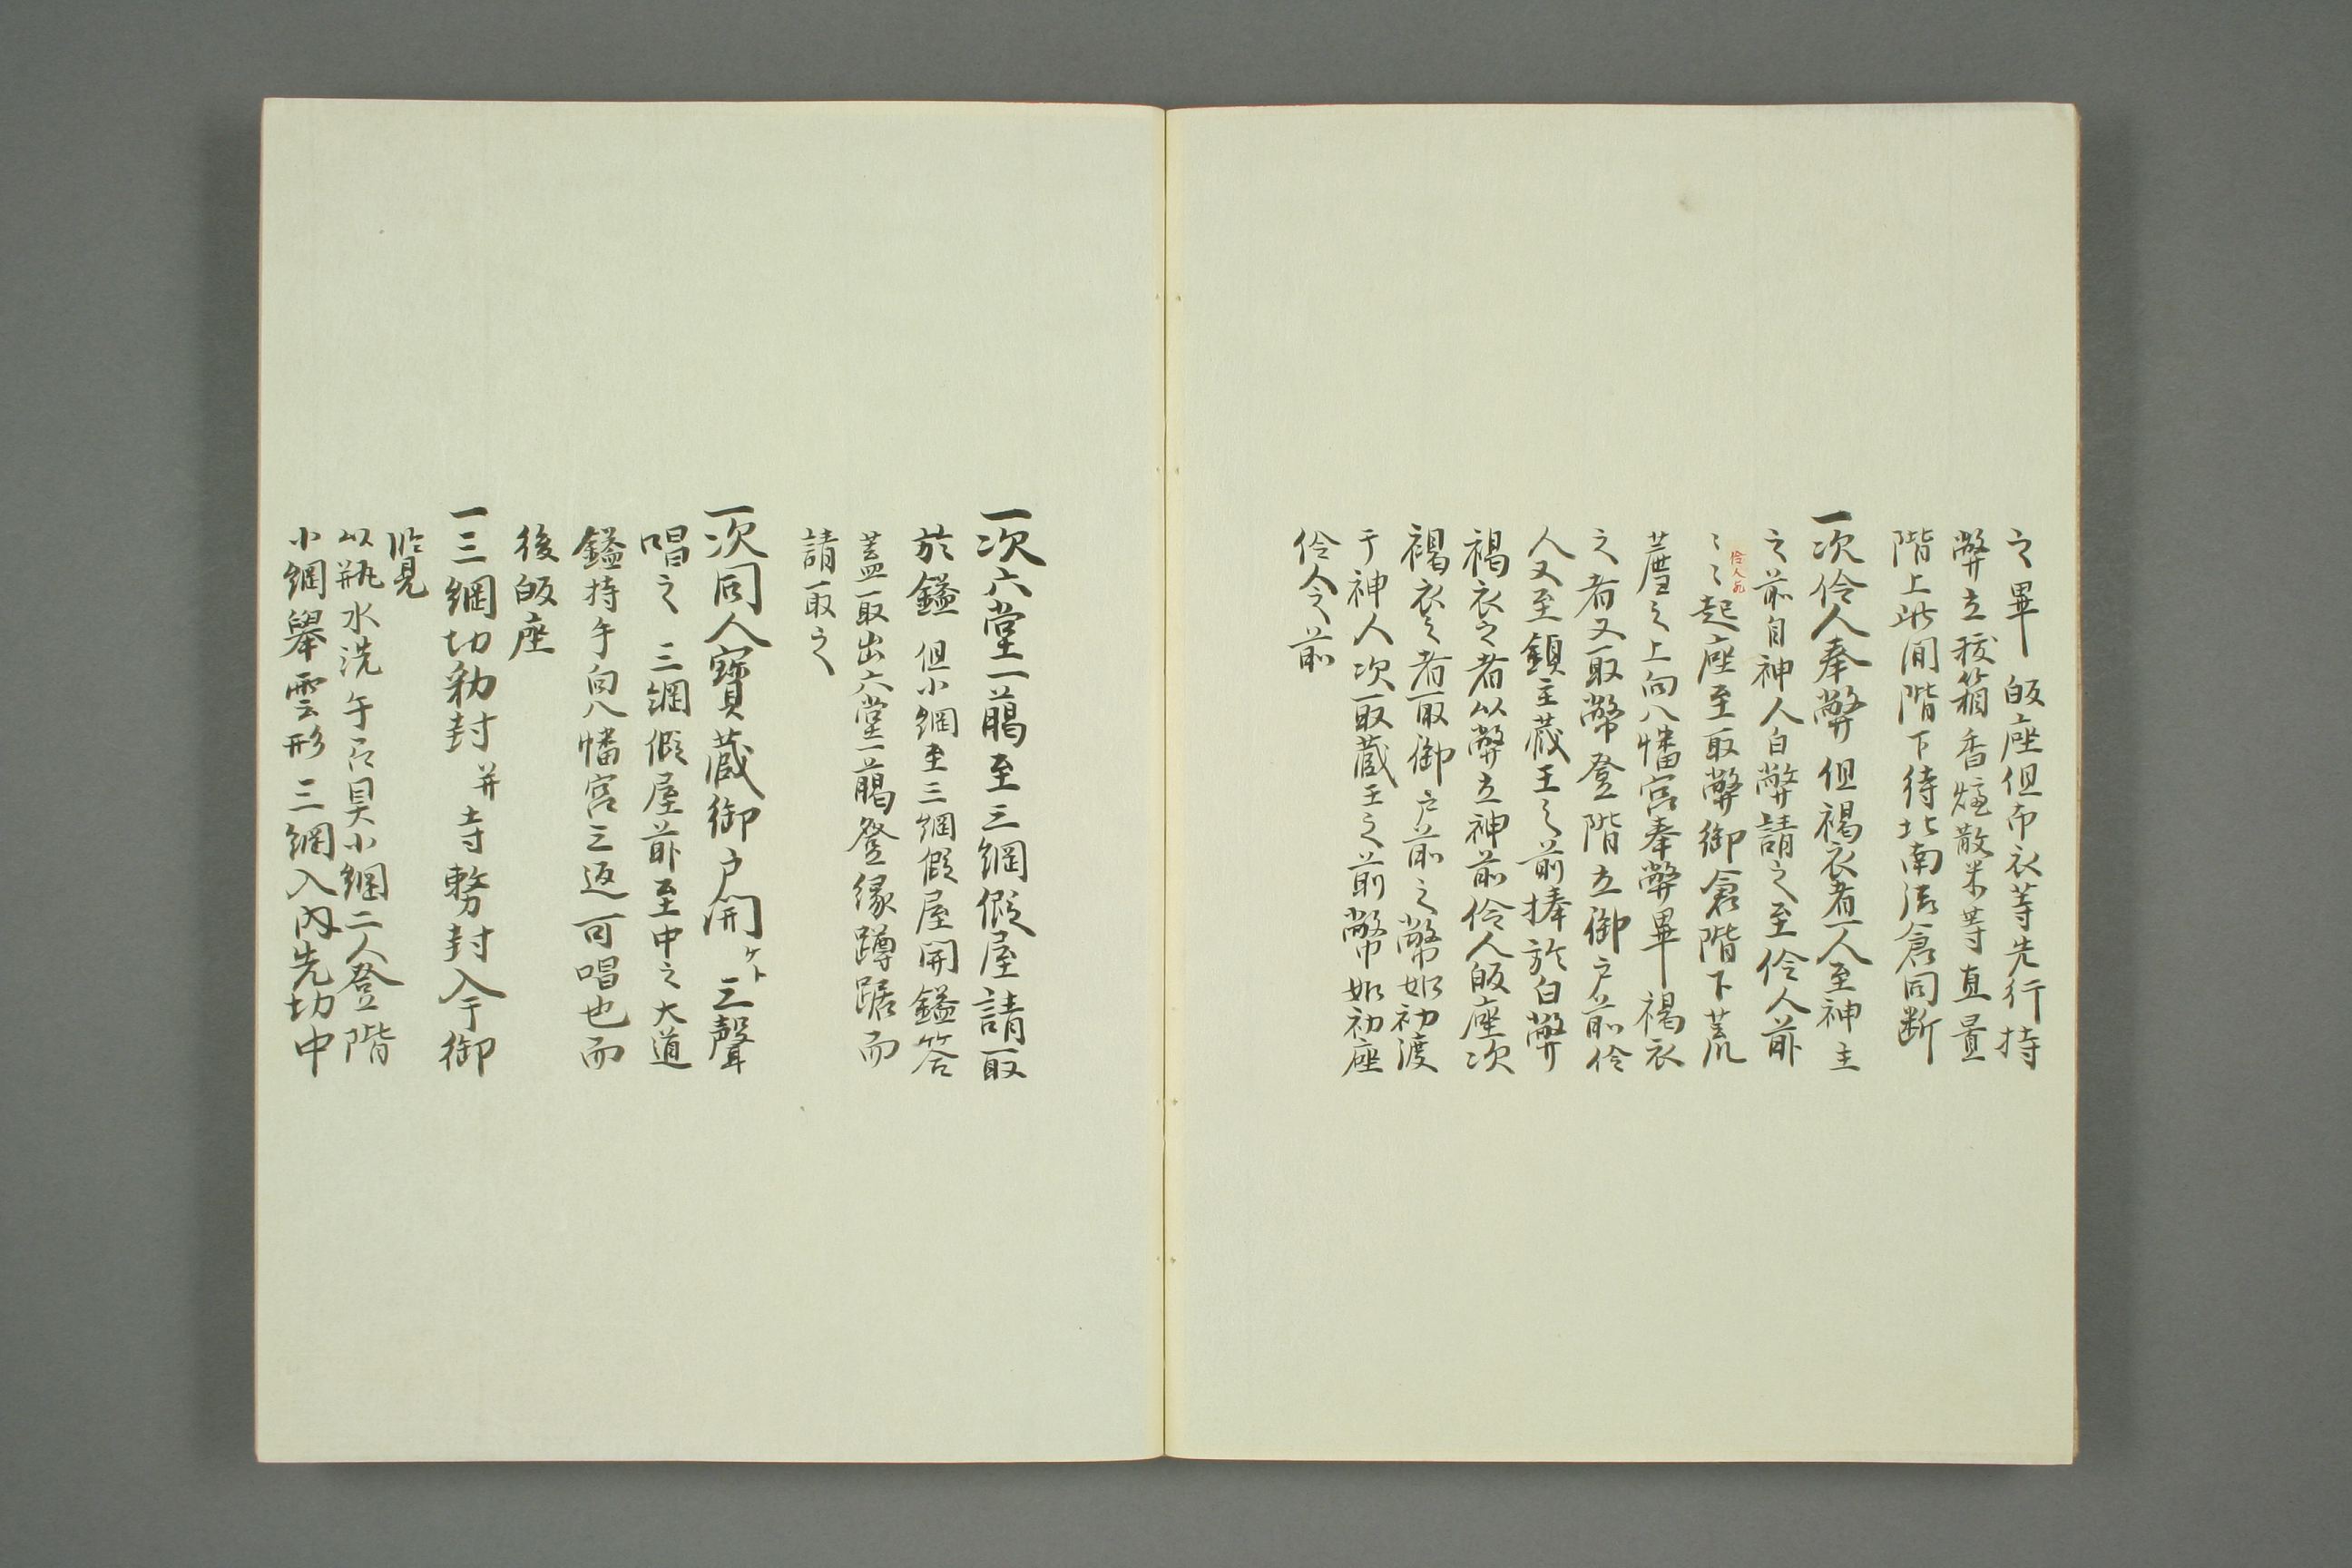 之畢 皈座但布衣等先行持
幣立祓箱香爐散米等直置
階上此間階下待北南法倉同断
一次伶人奉幣 但褐衣着一人至神主
之前自神人白幣請之至伶人前
〻〻起座至取幣御倉階下荒
薦之上向八幡宮奉幣畢 褐衣
之者又取幣登階立御戸前伶
人又至鎮主蔵王之前捧於白幣
褐衣之者以幣立神前伶人皈座次
褐衣之者取御戸前之幣如初渡
于神人次取蔵王之前幣如初座
伶人之前
一次六堂一﨟至三綱假屋請取
於鎰 但小綱至三綱假屋開鎰筥
蓋取出六堂一﨟登縁蹲踞而
請取之
一次同人寳蔵御戸開ケト 三聲
唱之 三綱假屋前至中之大道
鎰持午向八幡宮三返可唱也而
後皈座
一三綱切勅封 并寺務封入于御
監見
以瓶水洗午口具小綱二人登階
小綱舉雲形三綱入内先切中